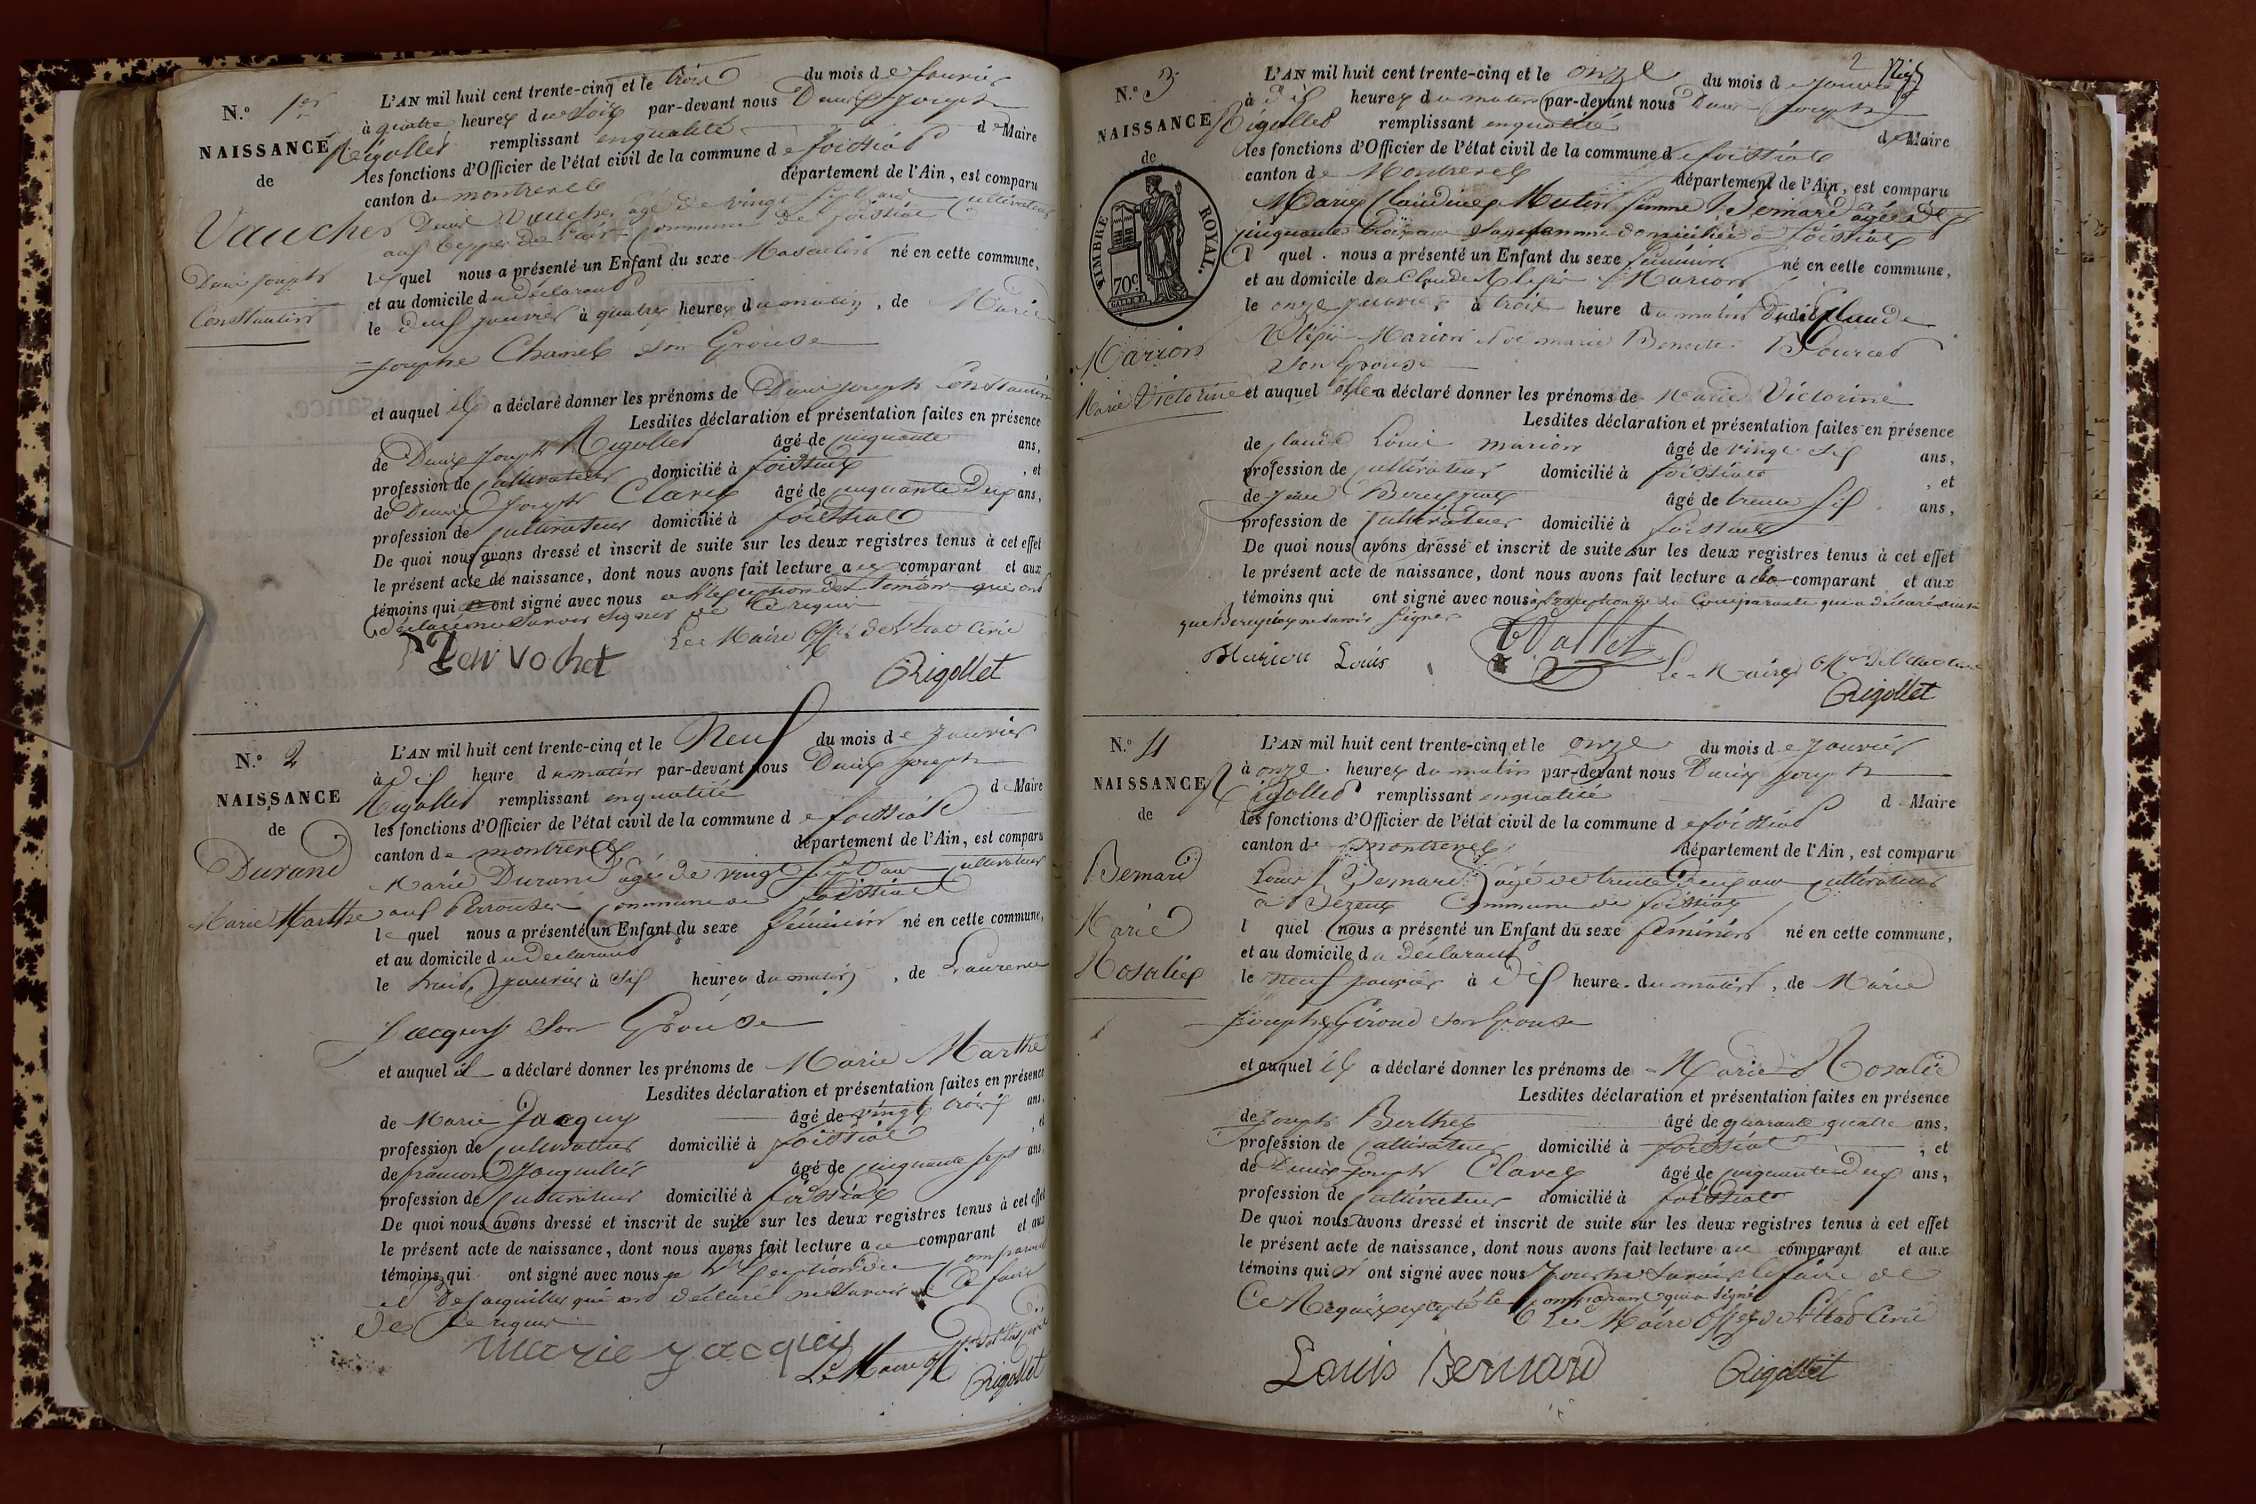 N.° 1er
NAISSANCE
de
Vaucher
Denis Joseph
Constantin
L'AN mil huit cent trente-cinq et le trois du mois de Janvier
à quatre heures du soir par-devant nous Denis Joseph
Rigollet remplissant en qualité de Maire
les fonctions d'Officier de l'état civil de la commune de foissiat
canton de montrevel département de l'Ain, est comparu
Denis Vaucher âgé de vingt sept ans cultivateur
commune de foissiat
lequel nous a présenté un Enfant du sexe Masculin né en cette commune,
et au domicile du déclarant
le deux janvier à quatre heures du matin, de Marie
Josephe Chanel son Epouse
et auquel il a déclaré donner les prénoms de Denis Joseph Constantin
Lesdites déclaration et présentation faites en présence
de Denis Joseph Rigollet âgé de cinquante ans,
profession de cultivateur domicilié à foissiat, et
de Denis Joseph Clavel âgé de cinquante deux ans,
profession de cultivateur domicilié à foissiat
De quoi nous avons dressé et inscrit de suite sur les deux registres tenus à cet effet
le présent acte de naissance, dont nous avons fait lecture au comparant et aux
témoins qui ont signé avec nous a l'exception des témoins qui ont
déclaré ne savoir signer de ce requis
Le Maire Off. de l'état Civil
Deni Vochet
Rigollet
N.° 2
NAISSANCE
de
Durand
Marie Marthe
L'AN mil huit cent trente-cinq et le Neuf du mois de Janvier
à dix heure du matin par-devant nous Denis Joseph
Rigollet remplissant en qualité de Maire
les fonctions d'Officier de l'état civil de la commune de foissiat
canton de montrevel département de l'Ain, est comparu
Marie Durand âgé de vingt sept ans cultivateur
commune de foissiat
lequel nous a présenté un Enfant du sexe féminin né en cette commune,
et au domicile du déclarant
le huit janvier à six heures du matin, de Laurence
Jacquet son Epouse
et auquel il a déclaré donner les prénoms de Marie Marthe
Lesdites déclaration et présentation faites en présence
de Marie Jacquet âgé de vingt trois ans,
profession de cultivateur domicilié à foissiat, et
de françois âgé de cinquante sept ans,
profession de cultivateur domicilié à foissiat
De quoi nous avons dressé et inscrit de suite sur les deux registres tenus à cet effet
le présent acte de naissance, dont nous avons fait lecture au comparant et aux
témoins qui ont signé avec nous a l'exception du comparant
et de qui ont déclaré ne savoir le faire
de ce requis
marie jacquet
Le Maire Off. de l'état civil
Rigollet
2
N.° 3
NAISSANCE
de
TIMBRE ROYAL.
70c
Marion
Marie Victorine
L'AN mil huit cent trente-cinq et le onze du mois de Janvier
à dix heures du matin par-devant nous Denis Joseph
Rigollet remplissant en qualité de Maire
les fonctions d'Officier de l'état civil de la commune de foissiat
canton de Montrevel département de l'Ain, est comparu
Marie Claudine Mutin femme Bernard âgée de
cinquante trois ans sage femme domiciliée à foissiat
l quel nous a présenté un Enfant du sexe féminin né en cette commune,
et au domicile de Claude Marion
le onze janvier à trois heure du matin dudit Claude
Marion et de marie Benoite
son Epouse
et auquel elle a déclaré donner les prénoms de Marie Victorine
Lesdites déclaration et présentation faites en présence
de claude Louis marion âgé de vingt six ans,
profession de cultivateur domicilié à foissiat, et
de âgé de trente six ans,
profession de cultivateur domicilié à foissiat
De quoi nous avons dressé et inscrit de suite sur les deux registres tenus à cet effet
le présent acte de naissance, dont nous avons fait lecture a la comparant et aux
témoins qui ont signé avec nous à l'exception de la Comparante qui a déclaré ainsi
que ne savoir signer
Marion Louis
Vallet
Le Maire Off. de l'état civil
Rigollet
N.° 4
NAISSANCE
de
Bernard
Marie
Rosalie
L'AN mil huit cent trente-cinq et le onze du mois de Janvier
à onze heures du matin par-devant nous Denis Joseph
Rigollet remplissant en qualité de Maire
les fonctions d'Officier de l'état civil de la commune de foissiat
canton de montrevel département de l'Ain, est comparu
Louis Bernard âgé de trente deux ans cultivateur
Commune de foissiat
l quel nous a présenté un Enfant du sexe féminin né en cette commune,
et au domicile du déclarant
le neuf janvier à dix heure du matin, de Marie
Josephe Giroud son Epouse
et auquel il a déclaré donner les prénoms de Marie Rosalie
Lesdites déclaration et présentation faites en présence
de Joseph Berthet âgé de quarante quatre ans,
profession de cultivateur domicilié à foissiat, et
de Denis Joseph Clavel âgé de cinquante deux ans,
profession de cultivateur domicilié à foissiat
De quoi nous avons dressé et inscrit de suite sur les deux registres tenus à cet effet
le présent acte de naissance, dont nous avons fait lecture au comparant et aux
témoins qui n'ont signé avec nous pour ne savoir le faire de
Ce Requis excepté le comparant qui a signé
Le Maire Off. de l'état Civil
Louis Bernard
Rigollet